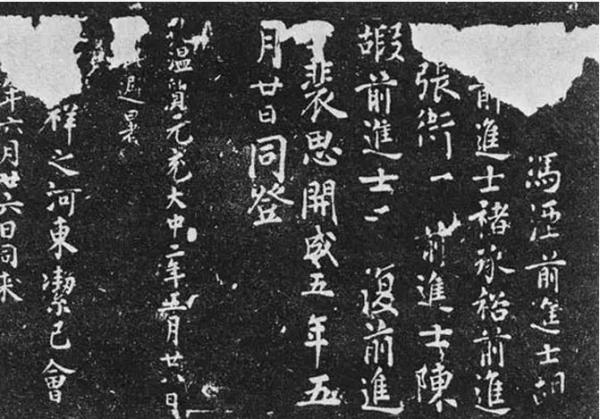 馮涯前進士胡
前進士褚承裕前進
張衜一 前進士陳
嘏前進士 復前進
裴思開成五年五
月廿日同登
温質元充大中二年五月廿八日
退晨
祥之河東潔己會
年六月廿六日同來